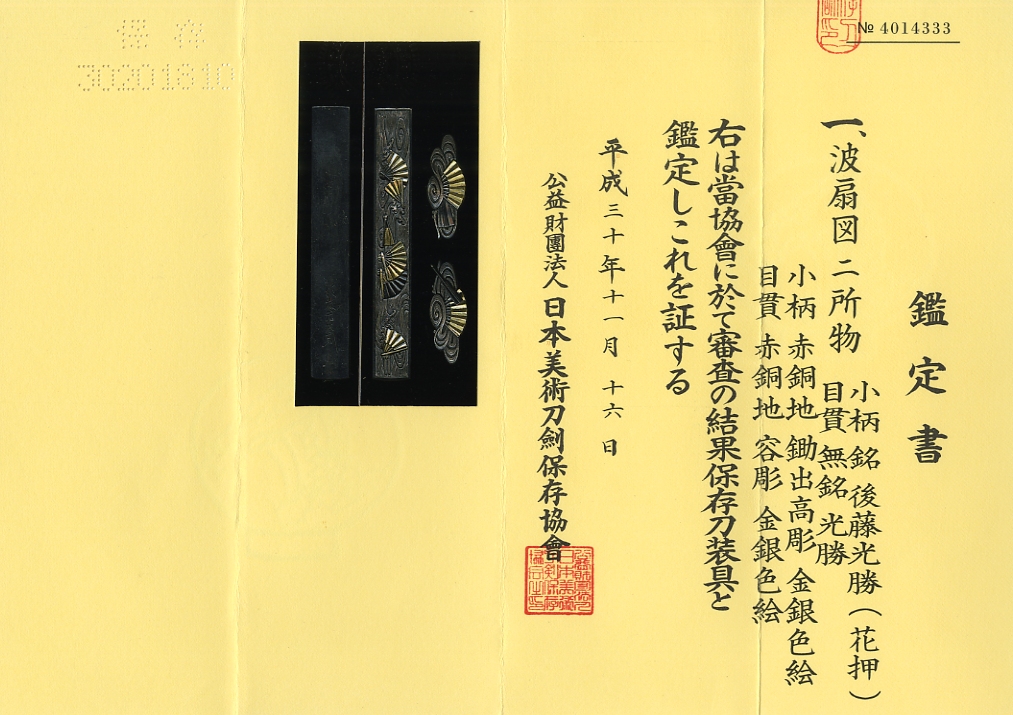 № 4014333
鑑定書
一、波扇図 二所物
小柄 銘 後藤光勝（花押）
目貫 無銘 光勝
小柄 赤銅地 鋤出高彫 金銀色絵
目貫 赤銅地 容彫 金銀色絵
右は當協會に於て審査の結果保存刀装具と
鑑定しこれを証する
平成三十年十一月 十六日
公益財團法人 日本美術刀劍保存協會
保存
30201810